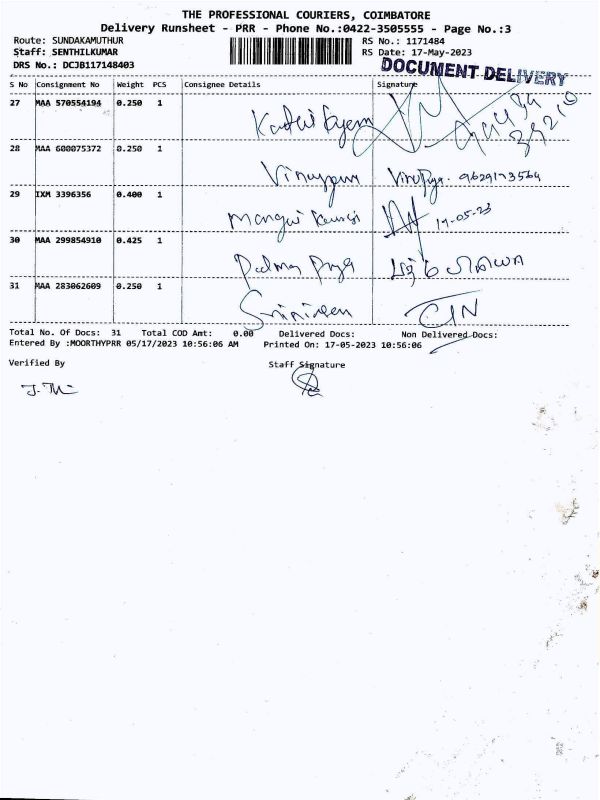 THE PROFESSIONAL COURIERS, COIMBATORE
Delivery Runsheet - PRR - Phone No.:0422-3505555 - Page No.:3
Route: SUNDAKAMUTHUR RS No.: 1171484
Staff: SENTHILKUMAR RS Date: 17-May-2023
DRS No.: DCJB117148403
DOCUMENT DELIVERY
S No Consignment No Weight PCS Consignee Details Signature
27 MAA 570554194 0.250 1
28 MAA 600075372 0.250 1
9629173564
29 IXM 3396356 0.400 1
17-05-23
30 MAA 299854910 0.425 1
31 MAA 283062609 0.250 1
Total No. Of Docs: 31 Total COD Amt: 0.00 Delivered Docs: Non Delivered Docs:
Entered By :MOORTHYPRR 05/17/2023 10:56:06 AM Printed On: 17-05-2023 10:56:06
Verified By Staff Signature